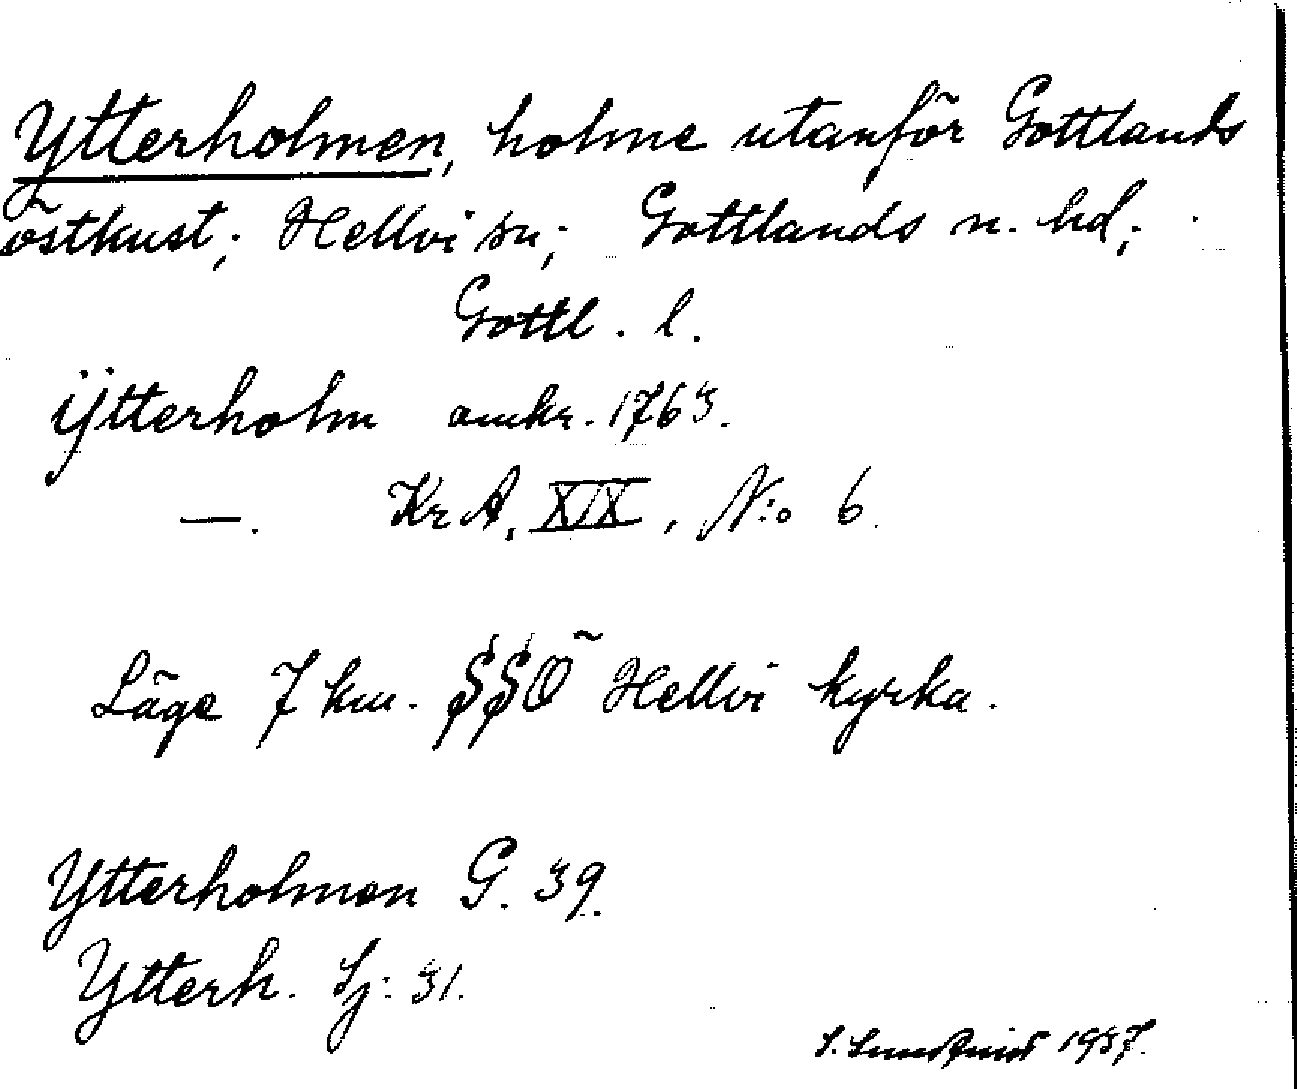 Ytterholmen, holme utanför Gottlands
östkust; Hellvi sn; Gottlands n. hd;
Gottl. l.
Ÿtterholm omkr. 1763.
—. KrA, XIX, N:o 6.
Läge 7 km. SSÖ Hellvi kyrka.
Ytterholmen G. 39.
Ytterh. Sj: 31.
S. Lundqvist 1937.